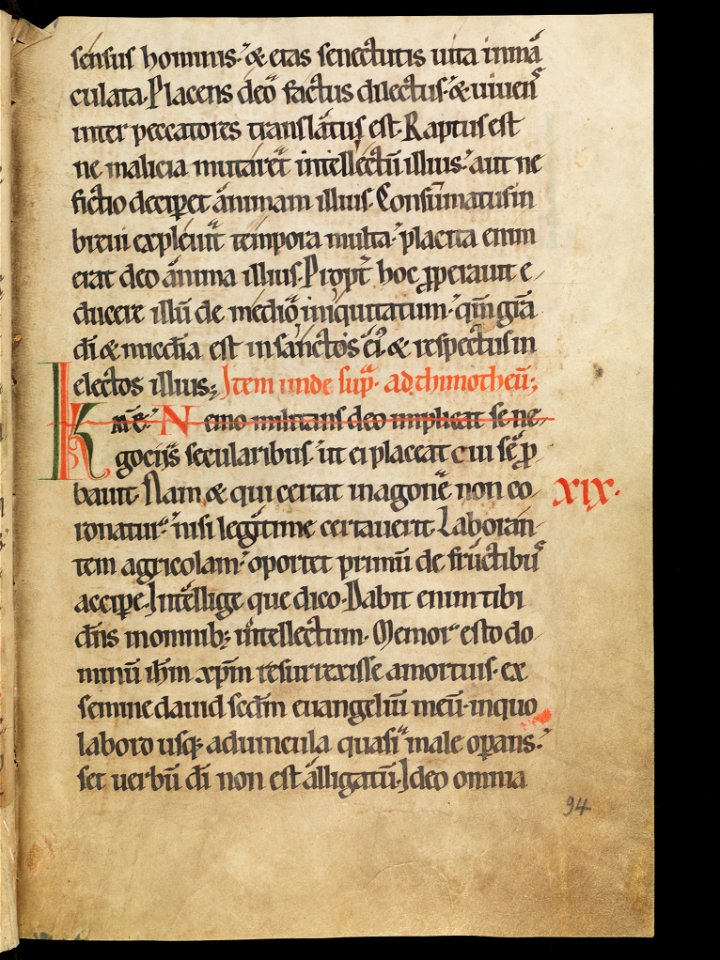 sensus hominis · & etas senectutis uita inmā
culata. Placens deo factus dilectus · & uiuens
inter peccatores translatus est. Raptus est
ne malicia mutaret intellectū illius · aut ne
fictio deciperet animam illius. Consummatus in
breui expleuit tempora multa · placita enim
erat deo anima illius. Propt̄ hoc ꝓperauit e-
ducere illū de medio iniquitatum · qm̄ gr̄a
di & mīcdia est in sanctos ei⁹ & respectus in
electos illius; Item unde supͣ. ad thimotheū;
K m̄e · Nemo militans deo implicat se ne-
gociis secularibus · ut ei placeat cui se ꝓ
bauit. Nam & qui certat in agone non co-
XIX.
ronatur · nisi legitime certauerit. Laboran-
tem agricolam · oportet primū de fructibus
accipe. Intellige que dico. Dabit enim tibi
dn̄s inomnib; intellectum. Memor esto do-
minū ih̄m xp̄m resurrexisse amortuis · ex
semine dauid sedm̄ euangeliū meū · inquo
laboro usq; aduincula quasi male oꝑans ·
set uerbū di non est alligatū. Ideo omnia
94